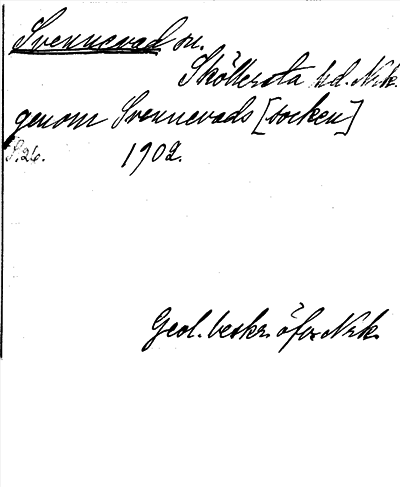 Svennevad sn.
Sköllersta hd. Nrk.
genom Svennevads [socken]
S. 26. 1902.
Geol. beskr. öfver Nrk.